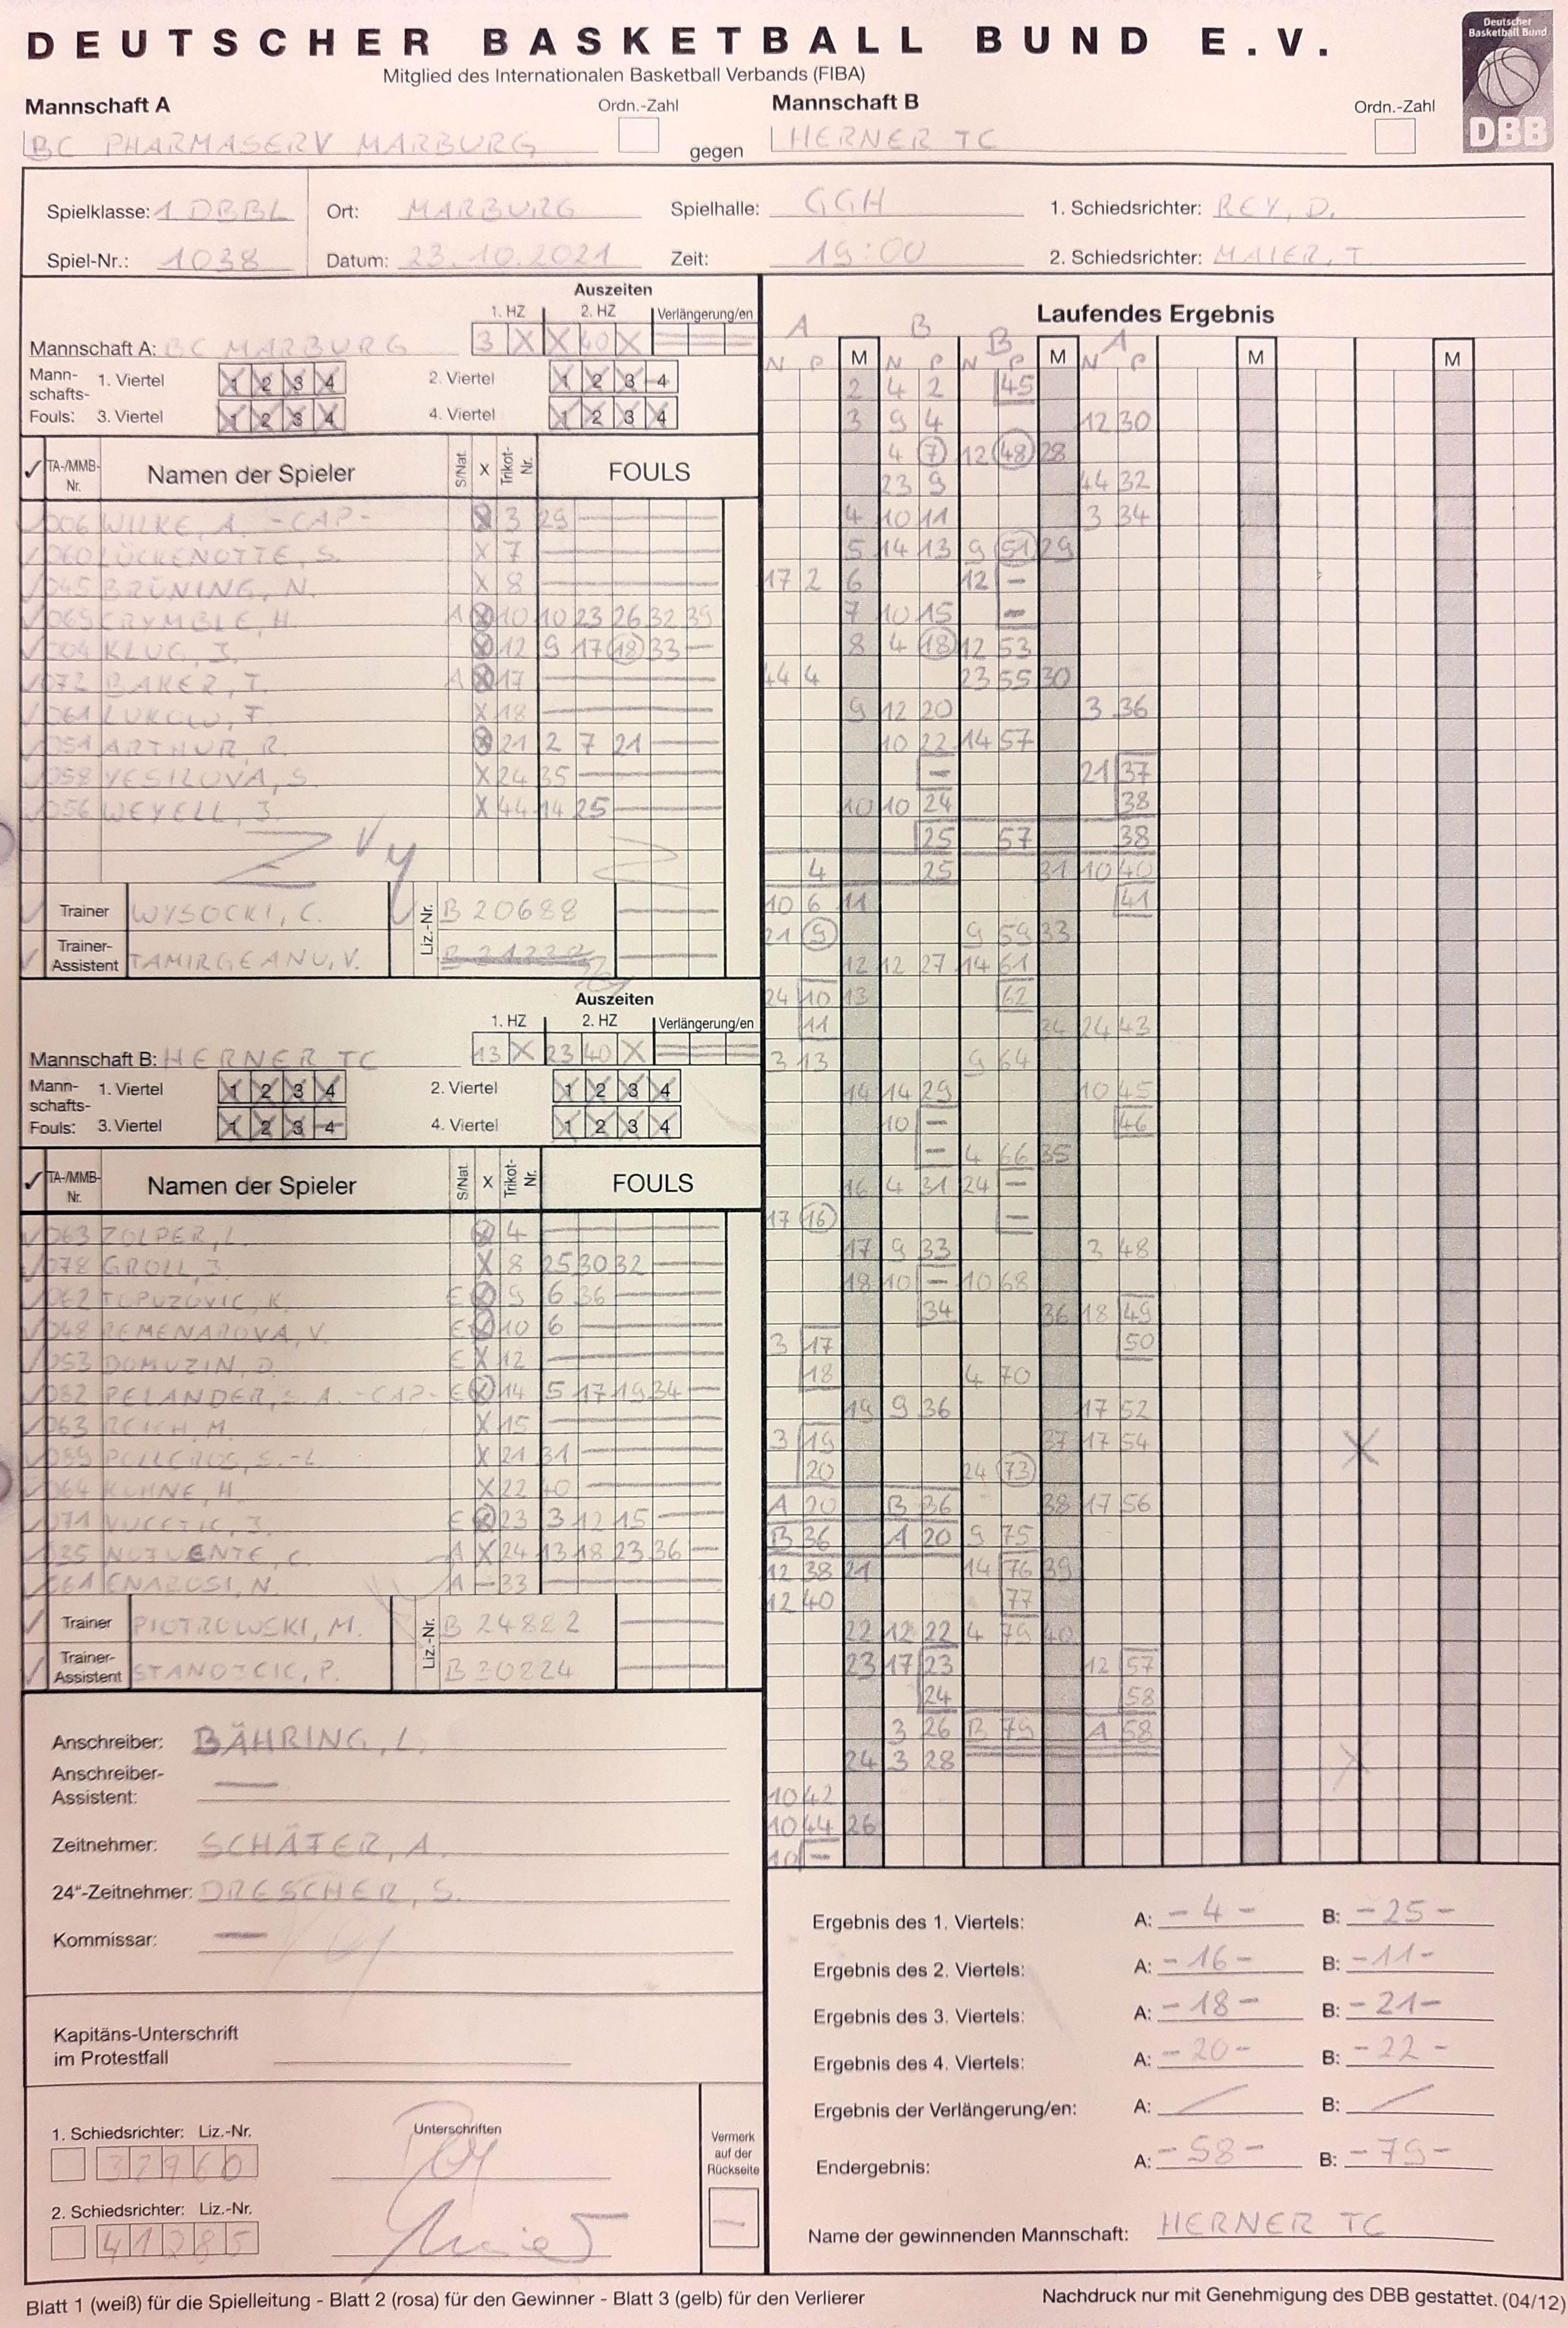 DEUTSCHER BASKETBALL BUND E.V.
Mitglied des Internationalen Basketball Verbands (FIBA)
Deutscher Basketball Bund
DBB
Mannschaft A Ordn.-Zahl Mannschaft B Ordn.-Zahl
BC PHARMASERV MARBURG gegen HERNER TC
Spielklasse: 1 DBBL Ort: MARBURG Spielhalle: GGH 1. Schiedsrichter: REY, D.
Spiel-Nr.: 1038 Datum: 23.10.2021 Zeit: 19:00 2. Schiedsrichter: MAIER, T
Auszeiten
1. HZ 2. HZ Verlängerung/en
Mannschaft A: BC MARBURG 3 X X 40 X
Mann-schafts-Fouls: 1. Viertel 1 2 3 4 2. Viertel 1 2 3 4
3. Viertel 1 2 3 4 4. Viertel 1 2 3 4
✓ TA-/MMB-Nr. Namen der Spieler S/Nat. X Trikot-Nr. FOULS
006 WILKE, A. -CAP- X 3 29
060 LÜCKENOTTE, S. X 7
045 BRÜNING, N. X 8
065 CRYMBLE, H. A X 10 10 23 26 32 39
004 KLUG, J. X 12 9 17 18 33
072 BAKER, T. A X 17
061 LUKOW, F. X 18
051 ARTHUR, R. X 21 2 7 21
058 YESILOVA, S X 24 35
056 WEYELL, J. X 44 14 25
Trainer WYSOCKI, C. Liz.-Nr. B 20688
Trainer-Assistent TAMIRGEANU, V.
Auszeiten
1. HZ 2. HZ Verlängerung/en
Mannschaft B: HERNER TC 13 X 23 40 X
Mann-schafts-Fouls: 1. Viertel 1 2 3 4 2. Viertel 1 2 3 4
3. Viertel 1 2 3 4 4. Viertel 1 2 3 4
✓ TA-/MMB-Nr. Namen der Spieler S/Nat. X Trikot-Nr. FOULS
063 ZOLPER, L. X 4
078 GROLL, J. X 8 25 30 32
062 TOPUZOVIC, K. E X 9 6 36
048 REMENAROVA, V. E X 10 6
053 DOMUZIN, D. E X 12
082 PELANDER, S. A. -CAP- E X 14 5 17 19 34
063 REICH, M. X 15
089 POLLEROS, S.-L X 21 31
064 KÜHNE, H X 22 40
071 VUCETIC, J. E X 23 3 12 15
035 NOTUENTE, C. A X 24 13 18 23 36
061 ENABOSI, N. A - 33
Trainer PIOTROWSKI, M. Liz.-Nr. B 24822
Trainer-Assistent STANOJCIC, P. B 30224
Anschreiber: BÄHRING, L.
Anschreiber-Assistent: —
Zeitnehmer: SCHÄFER, A.
24"-Zeitnehmer: DRESCHER, S.
Kommissar: —
Kapitäns-Unterschrift
im Protestfall
1. Schiedsrichter: Liz.-Nr. Unterschriften
32960
2. Schiedsrichter: Liz.-Nr.
41285
Vermerk auf der Rückseite
Laufendes Ergebnis
A B B A
N P M N P N P M N P M M
2 4 2 45
3 9 4 12 30
4 7 12 48 28
23 9 44 32
4 10 11 3 34
5 14 13 9 51 29
17 2 6 12 –
7 10 15 –
8 4 18 12 53
44 4 23 55 30
9 12 20 3 36
10 22 14 57
– 21 37
10 10 24 38
25 57 38
4 25 31 10 40
10 6 11 41
21 9 9 59 33
12 12 27 14 61
24 10 13 62
11 34 24 43
3 13 9 64
14 14 29 10 45
10 – 46
– 4 66 35
16 4 31 24 –
17 16 –
17 9 33 3 48
18 10 – 10 68
34 36 18 49
3 17 50
18 4 70
19 9 36 17 52
3 19 37 17 54
20 24 73
A 20 B 36 38 17 56
B 36 A 20 9 75
12 38 21 14 76 39
12 40 77
22 12 22 4 79 40
23 17 23 12 57
24 58
3 26 B 79 A 58
24 3 28
10 42
10 44 26
10 –
Ergebnis des 1. Viertels: A: - 4 - B: - 25 -
Ergebnis des 2. Viertels: A: - 16 - B: - 11 -
Ergebnis des 3. Viertels: A: - 18 - B: - 21 -
Ergebnis des 4. Viertels: A: - 20 - B: - 22 -
Ergebnis der Verlängerung/en: A: / B: /
Endergebnis: A: - 58 - B: - 79 -
Name der gewinnenden Mannschaft: HERNER TC
Blatt 1 (weiß) für die Spielleitung - Blatt 2 (rosa) für den Gewinner - Blatt 3 (gelb) für den Verlierer
Nachdruck nur mit Genehmigung des DBB gestattet. (04/12)